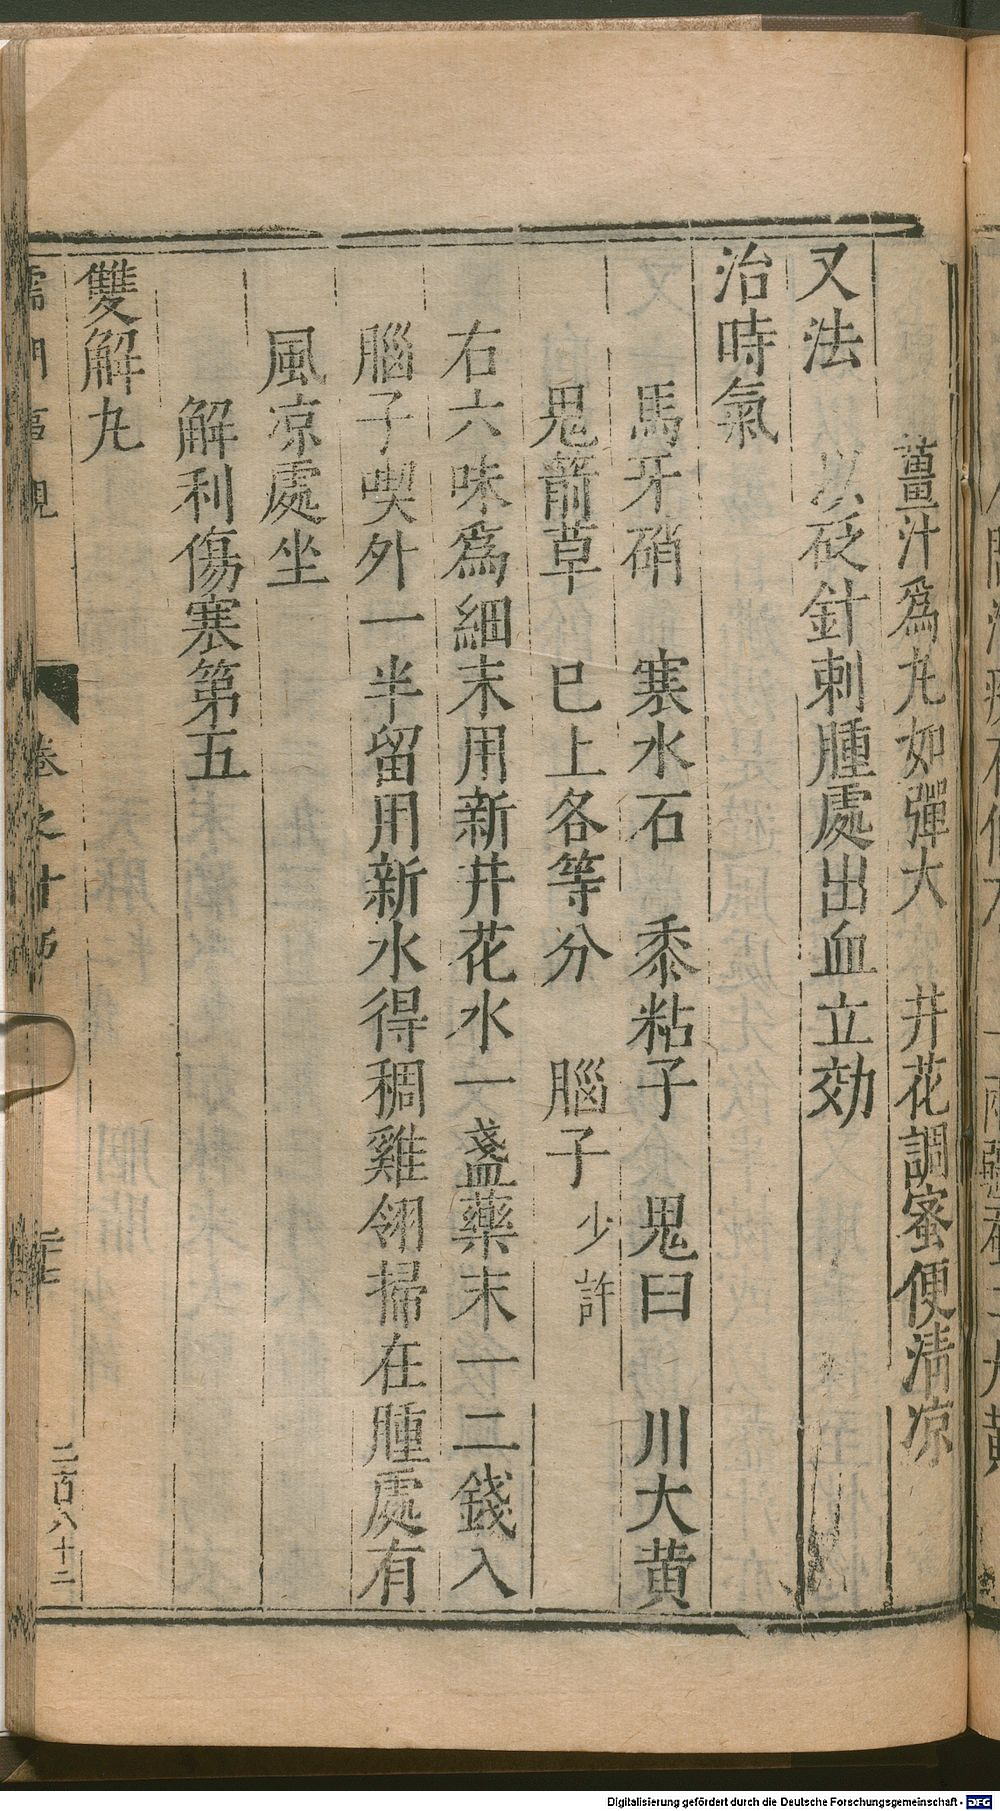 薑汁為丸如彈大　井花調蜜便清凉
又法　以砭針刺腫處出血立効
治時氣
馬牙硝　寒水石　黍粘子　鬼臼　川大黄
鬼箭草　已上各等分　腦子少許
右六味為細末用新井花水一盞藥末一二錢入
腦子喫外一半留用新水得稠雞翎掃在腫處有
風凉處坐
解利傷寒第五
雙解丸
儒門事親　卷之十五　二百八十二
Digitalisierung gefördert durch die Deutsche Forschungsgemeinschaft - DFG